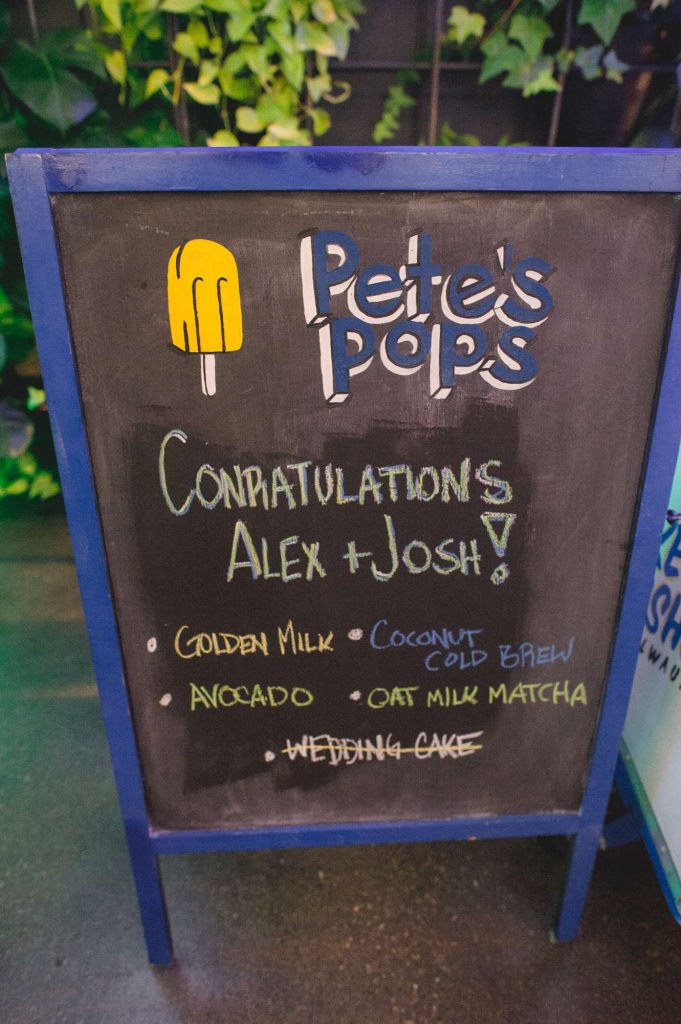 Pete's
pops
CONRATULATIONS
ALEX + JOSH!
• GOLDEN MILK
• COCONUT
COLD BREW
• AVOCADO
• OAT MILK MATCHA
• WEDDING CAKE